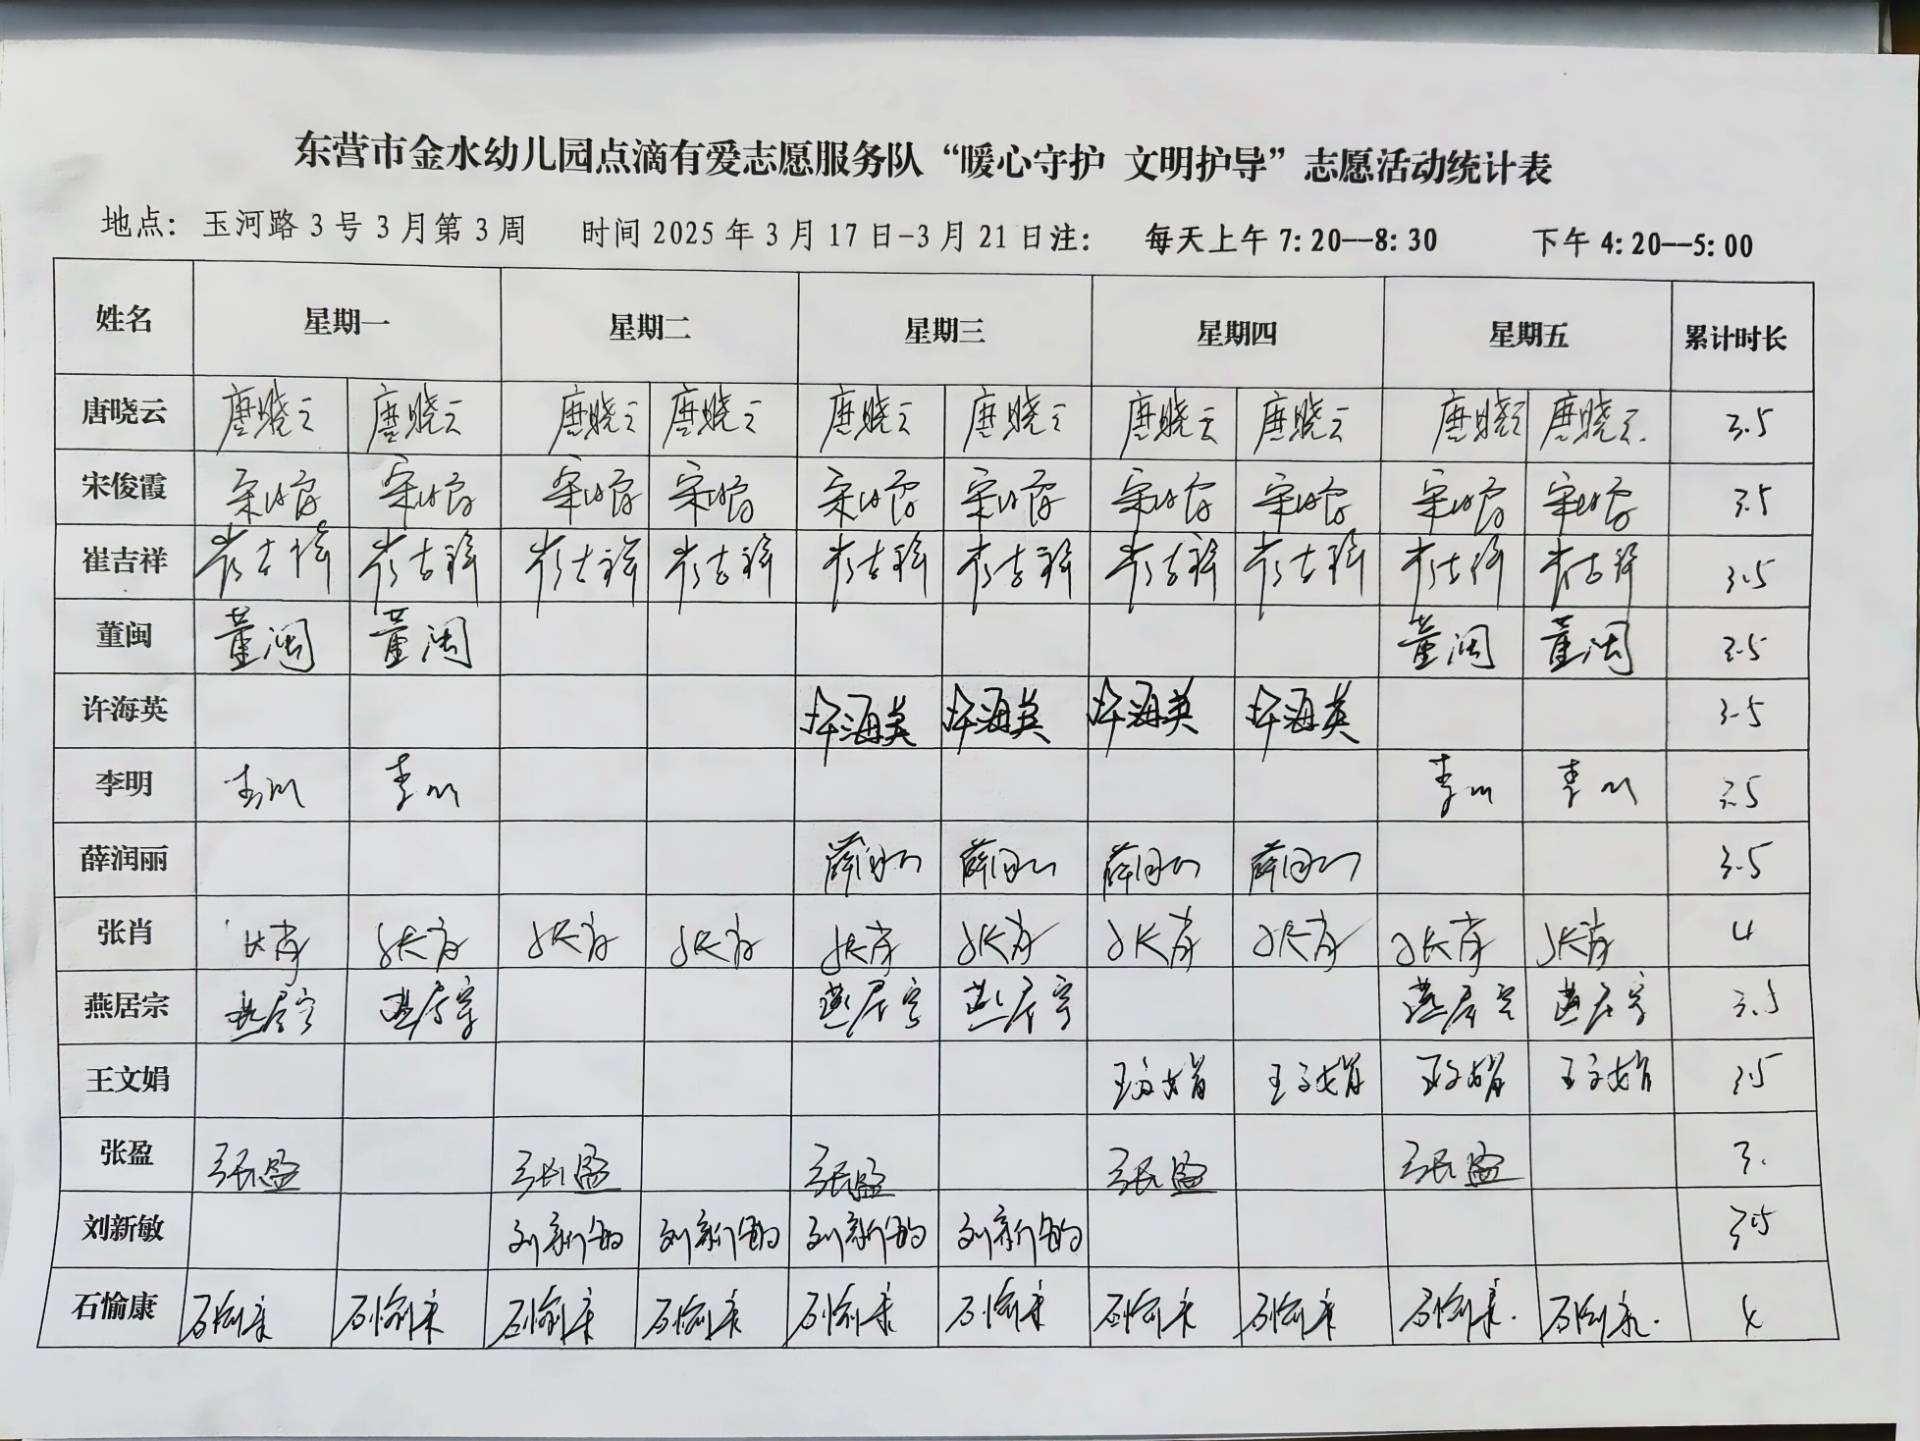 东营市金水幼儿园点滴有爱志愿服务队“暖心守护 文明护导”志愿活动统计表
地点：玉河路3号3月第3周 时间2025年3月17日-3月21日注： 每天上午7:20--8:30 下午4:20--5:00
姓名 星期一 星期二 星期三 星期四 星期五 累计时长
唐晓云 唐晓云 唐晓云 唐晓云 唐晓云 唐晓云 唐晓云 唐晓云 唐晓云 唐晓云 唐晓云. 3.5
宋俊霞 宋俊霞 宋俊霞 宋俊霞 宋俊霞 宋俊霞 宋俊霞 宋俊霞 宋俊霞 宋俊霞 宋俊霞 3.5
崔吉祥 崔吉祥 崔吉祥 崔吉祥 崔吉祥 崔吉祥 崔吉祥 崔吉祥 崔吉祥 崔吉祥 崔吉祥 3.5
董闽 董闽 董闽 董闽 董闽 3.5
许海英 许海英 许海英 许海英 许海英 3.5
李明 李明 李明 李明 李明 3.5
薛润丽 薛润丽 薛润丽 薛润丽 薛润丽 3.5
张肖 张肖 张肖 张肖 张肖 张肖 张肖 张肖 张肖 张肖 张肖 4
燕居宗 燕居宗 燕居宗 燕居宗 燕居宗 燕居宗 燕居宗 3.5
王文娟 王文娟 王文娟 王文娟 王文娟 3.5
张盈 张盈 张盈 张盈 张盈 张盈 3.
刘新敏 刘新敏 刘新敏 刘新敏 刘新敏 3.5
石愉康 石愉康 石愉康 石愉康 石愉康 石愉康 石愉康 石愉康 石愉康 石愉康. 石愉康. 4